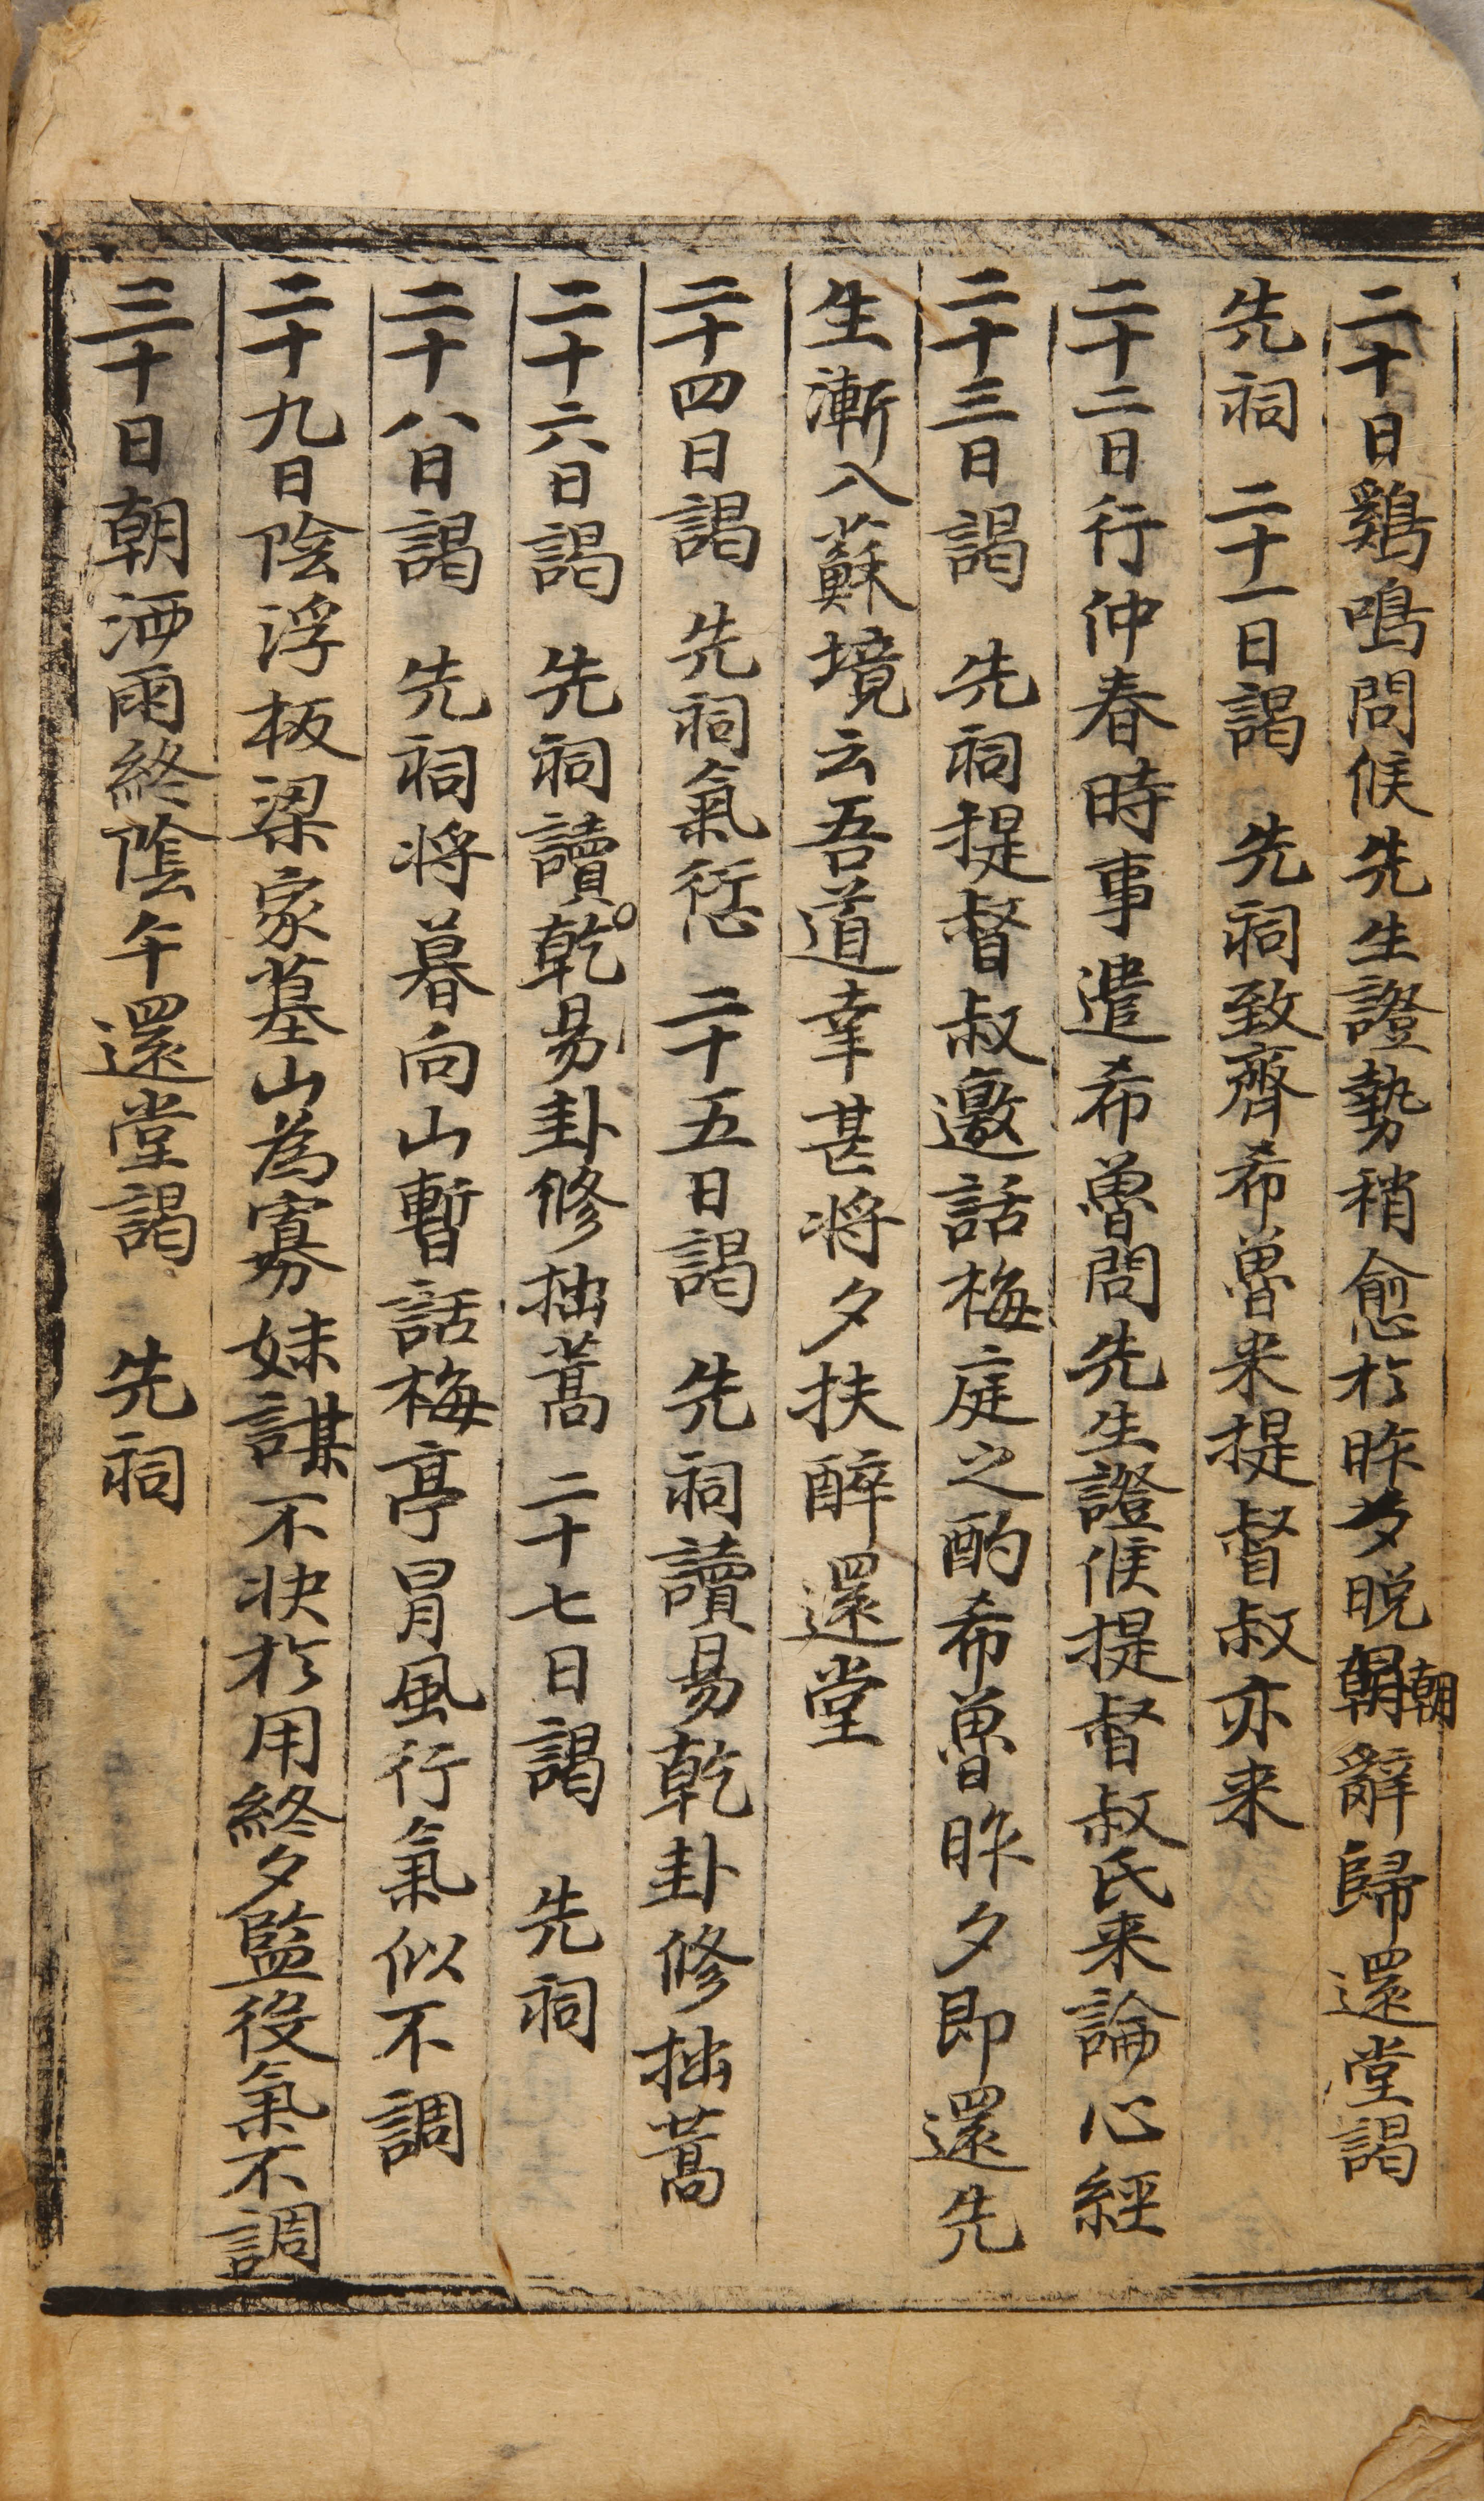 二十日鷄鳴問候先生證勢稍愈於昨夕晚朝朝辭歸還堂謁
先祠 二十一日謁 先祠致齊希魯来提督叔亦来
二十二日行仲春時事遣希魯問先生證候提督叔氏来論心經
二十三日謁 先祠提督叔邀話梅庭之酌希魯昨夕即還先
生漸入蘇境云吾道幸甚将夕扶醉還堂
二十四日謁 先祠氣愆 二十五日謁 先祠讀易乾卦修拙藁
二十六日謁 先祠讀乾易卦修拙藁 二十七日謁 先祠
二十八日謁 先祠将暮向山暫話梅亭冒風行氣似不調
二十九日陰浮板梁家墓山為寡妹謀不決於用終夕監役氣不調
三十日朝洒雨終陰午還堂謁 先祠